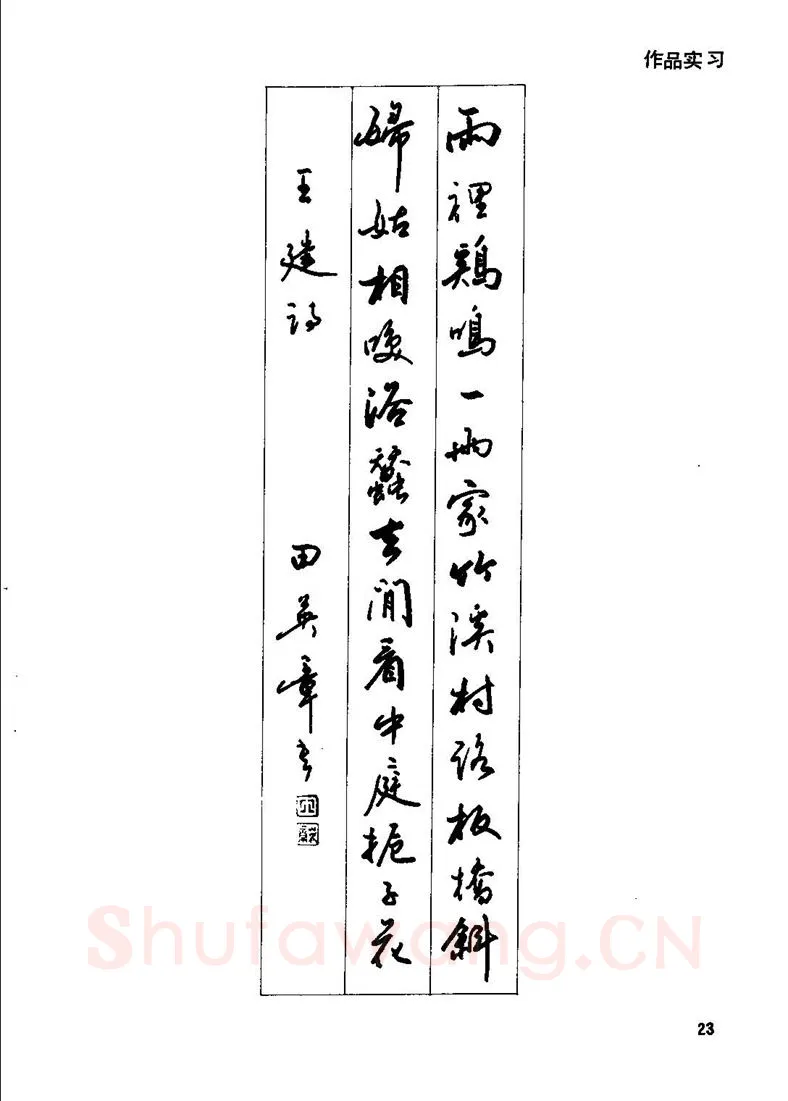 作品实习
雨裡鷄鳴一兩家竹溪村路板橋斜
婦姑相喚浴蠶去閒看中庭梔子花
王建诗
田英章书
Shufawang.CN
23